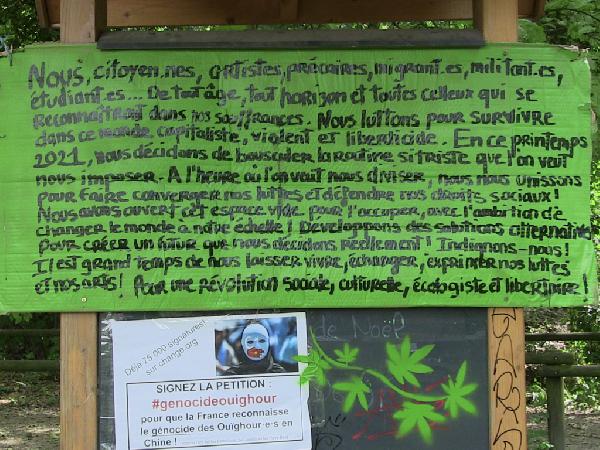 Nous, citoyen.nes, artistes, précaires, migrant.es, militant.es,
étudiant.es... De tout âge, tout horizon et toutes celleux qui se
reconnaîtront dans nos souffrances. Nous luttons pour survivre
dans ce monde capitaliste, violent et liberticide. En ce printemps
2021, nous décidons de bousculer la routine si triste que l'on veut
nous imposer. A l'heure où l'on veut nous diviser, nous nous unissons
pour faire converger nos luttes et défendre nos droits sociaux!
Nous avons ouvert cet espace vide pour l'occuper, avec l'ambition de
changer le monde à notre échelle! Développons des solutions alternatives
pour créer un future que nous décidons réellement! Indignons-nous!
Il est grand temps de nous laisser vivre, échanger, exprimer nos luttes
et nos arts! Pour une révolution sociale, culturelle, écologiste et libertaire!
de Noël
Déjà 75 000 signatures
sur change.org
SIGNEZ LA PETITION :
#genocideouighour
pour que la France reconnaisse
le génocide des Ouïghour·e·s en
Chine !